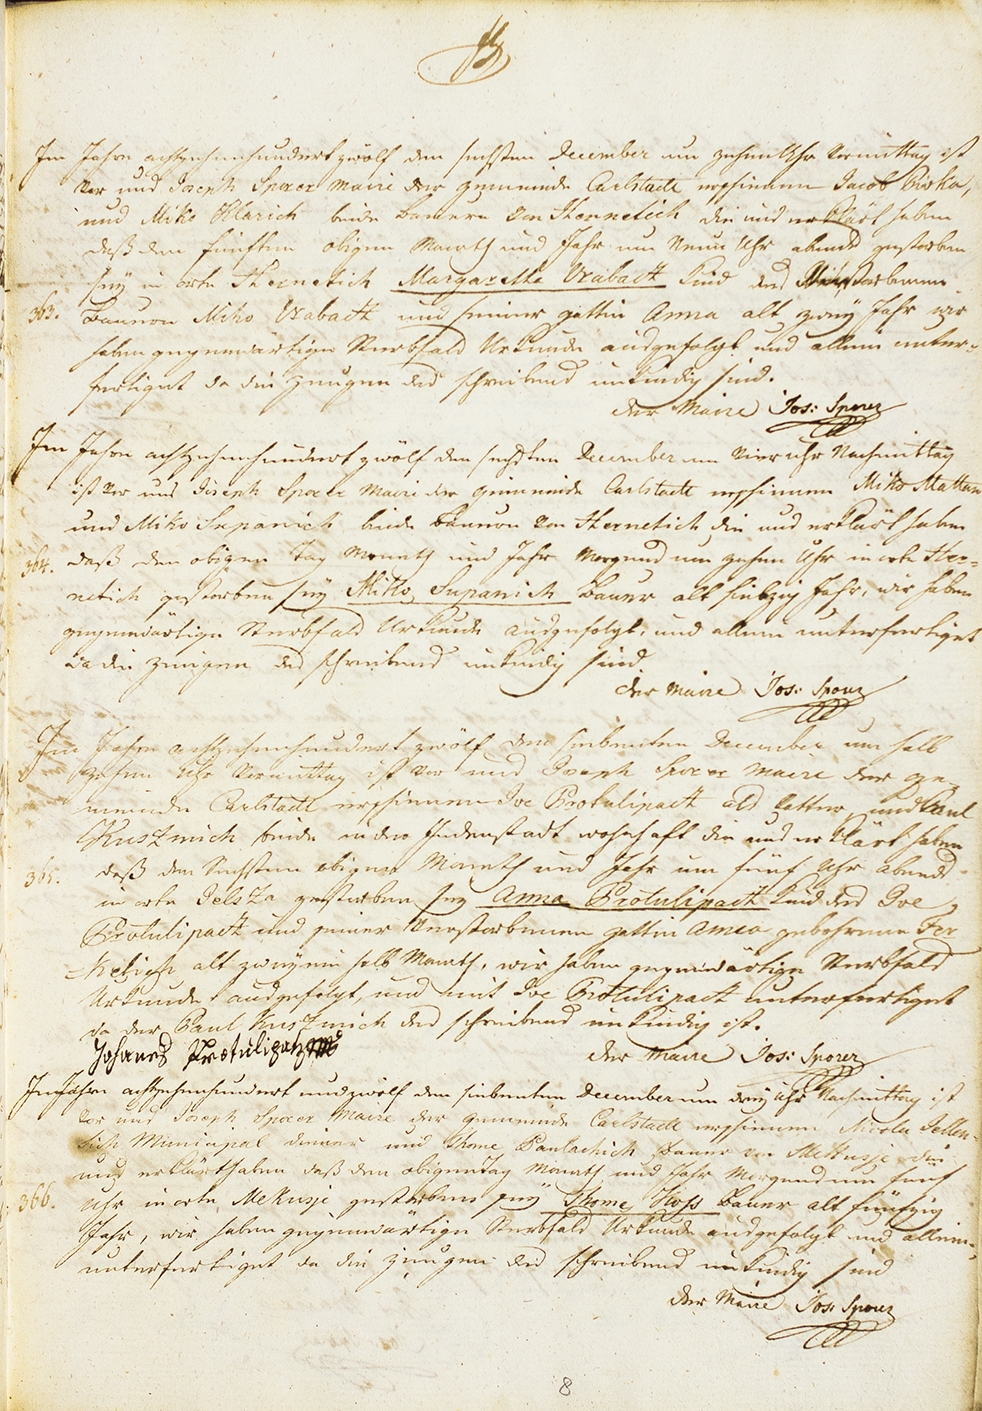 Im Jahre achtzehnhundert zwölf den sechsten December um zehen Uhr Vormittag ist
vor uns Joseph Sporer Maire der gemeinde Carlstadt erschienen Jacob
und Miko beide Bauern von Thernetich die uns erklärt haben
daß den fünften obigen Monath und Jahr um Neun Uhr abends gestorben
sey in orte Thernetich Margaretha Vrabactt Kind des Verstorbenen
363. Bauern Miko Vrabactt und seiner gattin Anna alt zwey Jahr wir
haben gegenwärtige Sterbfals Urkunde ausgefolgt und allein unter-
fertiget da die Zeugen des schreibens unkundig sind.
der Maire Jos: Sporer
Im Jahre achtzehenhundert zwölf den sechsten December um Vier uhr Nachmittag
ist vor uns Joseph Sporer Maire der gemeinde Carlstadt erschienen Miko
und Miko Supanich beide Bauern von Thernetich die uns erklärt haben
364. daß den obigen Tag Monath und Jahr Morgens um zehen Uhr in orte Ther-
netich gestorben sey Miko Supanich Bauer alt siebzig Jahr, wir haben
gegenwärtige Sterbfals Urkunde ausgefolgt, und allein unterfertiget
da die zeugen des schreibens unkundig sind.
der Maire Jos: Sporer
Im Jahre achtzehenhundert zwölf den siebenten December um halb
zehen Uhr Vormittag ist vor uns Joseph Sporer Maire der ge-
meinde Carlstadt erschienen Ive Protulipactt als Vatter, und Paul
Kuszmich beide in der wohnhaft die uns erklärt haben
365. daß den Sechsten obigen Monath und Jahr um fünf Uhr abends
in orte Jelsza gestorben sey Anna Protulipactt Kind des Ive
Protulipactt und seiner Verstorbenen gattin gebohrene
alt zwey ein halb Monath, wir haben gegenwärtige Sterbfals
Urkunde ausgefolgt, und mit Ive Protulipactt unterfertiget
da der Paul Kuszmich des schreibens unkundig ist.
der Maire Jos: Sporer
Im Jahre achtzehenhundert und zwölf den siebenten December um drey Uhr Nachmittag ist
vor uns Joseph Sporer Maire der gemeinde Carlstadt erschienen Nicola
Municipal diener und Thome Bauer von Mekusje die
uns erklärt haben daß den obigen Tag Monath und Jahr Morgens um fünf
366. Uhr in orte Mekusje gestorben sey Thome Bauer alt fünfzig
Jahr, wir haben gegenwärtige Sterbfals Urkunde ausgefolgt und allein
unterfertiget da die zeugen des schreibens unkundig sind
der Maire Jos: Sporer
8